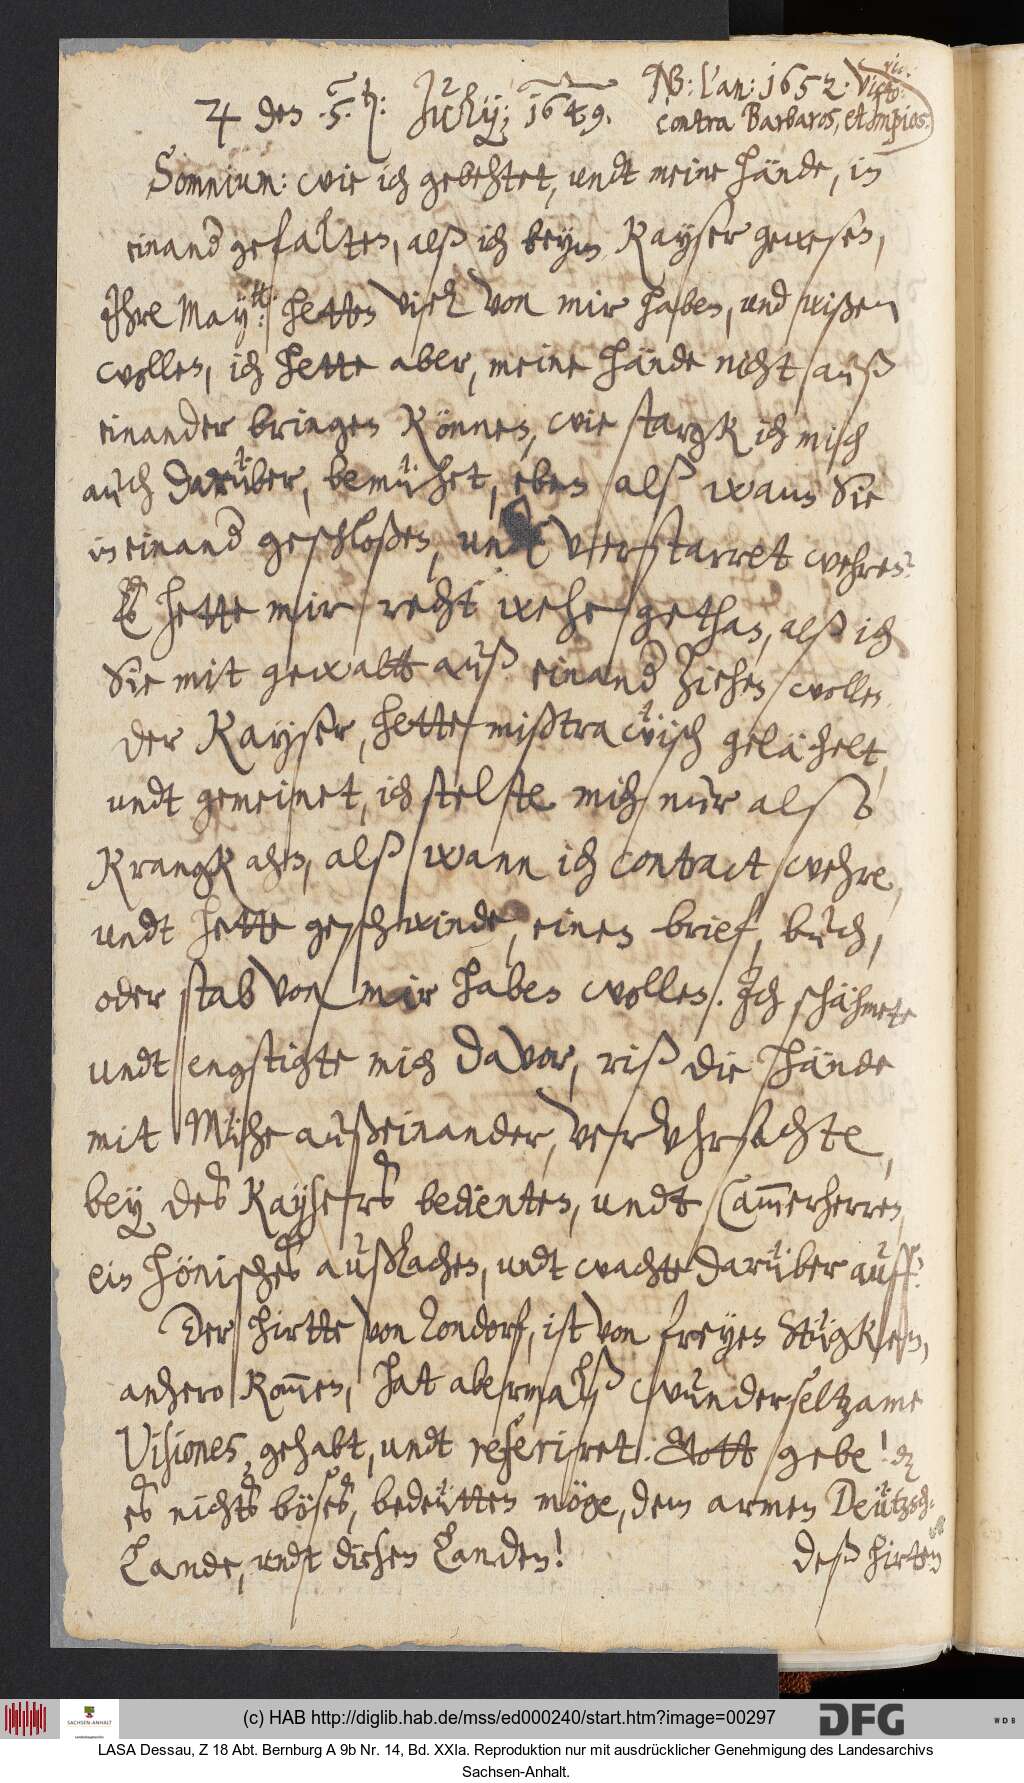 ♃ den .5.ten: Julÿ; 1649.
NB: l'an: 1652. Vict:
contra Barbaros, et Impios.
Somnium: wie ich gebehtet, undt meine hände, in
einand gefalten, alß ich beym Kayser gewesen,
Ihre Mayt: hetten viel von mir haben, und wißen
wollen, ich hette aber, meine hände nicht auß
einander bringen können, wie stargk ich mich
auch darüber, bemühet, eben alß wann Sie
in einand geschloßen, und verstarret wehren.
Es hette mir recht wehe gethan, alß ich
Sie mit gewaltt auß einand ziehen wollen
der Kayser, hette mißtrawisch gelächelt,
undt gemeinet, ich stelste mich nur also
krangk ahn, alß wann ich contract wehre,
undt hette geschwinde, einen brief, buch,
oder stab von mir haben wollen. Ich schähmete
undt engstigte mich davor, riß die hände
mit Mühe außeinander, veruhrsachte,
bey des Kaysers bedienten, undt Cammerherren,
ein hönisches außlachen, undt wachte darüber auff.
Der hirtte von Zondorf, ist von freyen Stügken,
anhero kommen, hat abermalß wunderseltzame
Visiones, gehabt, undt referiret. Gott gebe! dz
es nichts böses, bedeütten möge, dem armen Deützsch-
Lande, undt diesen Landen!
deß hirten
(c) HAB http://diglib.hab.de/mss/ed000240/start.htm?image=00297
SACHSEN-ANHALT
DFG
WDB
LASA Dessau, Z 18 Abt. Bernburg A 9b Nr. 14, Bd. XXIa. Reproduktion nur mit ausdrücklicher Genehmigung des Landesarchivs
Sachsen-Anhalt.